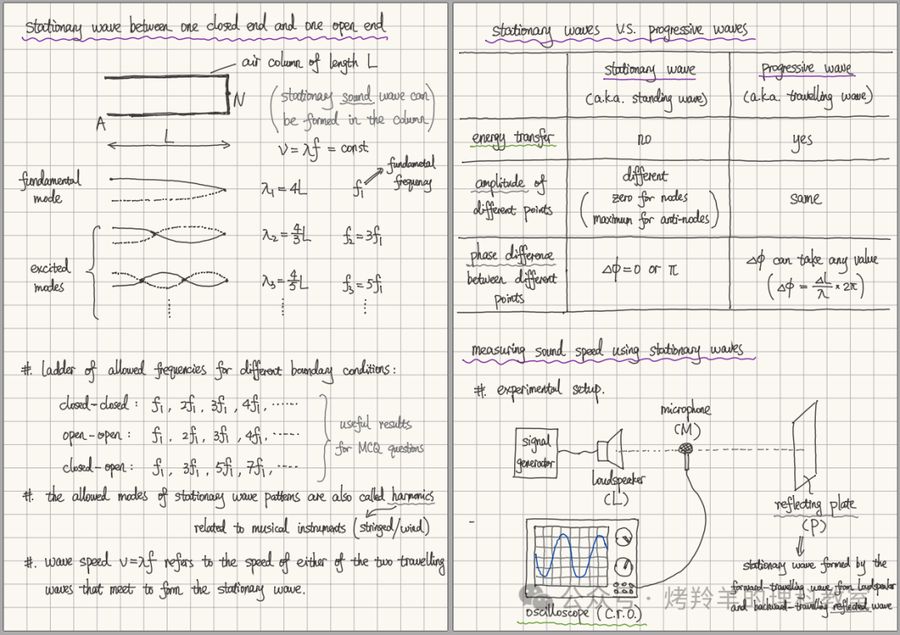 stationary wave between one closed end and one open end
air column of length L
N
(stationary sound wave can
be formed in the column)
A
L
v = λf = const
fundametal
frequency
fundamental
mode
λ₁ = 4L
f₁
λ₂ = 4/3 L
f₂ = 3f₁
excited
modes
λ₃ = 4/5 L
f₃ = 5f₁
#. ladder of allowed frequencies for different boundary conditions:
closed-closed : f₁ , 2f₁ , 3f₁ , 4f₁ , ......
open-open : f₁ , 2f₁ , 3f₁ , 4f₁ , ......
closed-open : f₁ , 3f₁ , 5f₁ , 7f₁ , ......
useful results
for MCQ questions
#. the allowed modes of stationary wave patterns are also called harmonics
related to musical instruments (stringed/wind)
#. wave speed v=λf refers to the speed of either of the two travelling
waves that meet to form the stationary wave.
stationary waves V.S. progressive waves
stationary wave
(a.k.a. standing wave)
progressive wave
(a.k.a. travelling wave)
energy transfer
no
yes
amplitude of
different points
different
(zero for nodes
maximum for anti-nodes)
same
phase difference
between different
points
Δϕ = 0 or π
Δϕ can take any value
(Δϕ = ΔL/λ × 2π)
measuring sound speed using stationary waves
#. experimental setup.
microphone
(M)
signal
generator
loudspeaker
(L)
reflecting plate
(P)
stationary wave formed by the
forward-travelling wave from loudspeaker
and backward-travelling reflected wave
oscilloscope (C.r.o.)
公众号 · 烤羚羊的理科教室